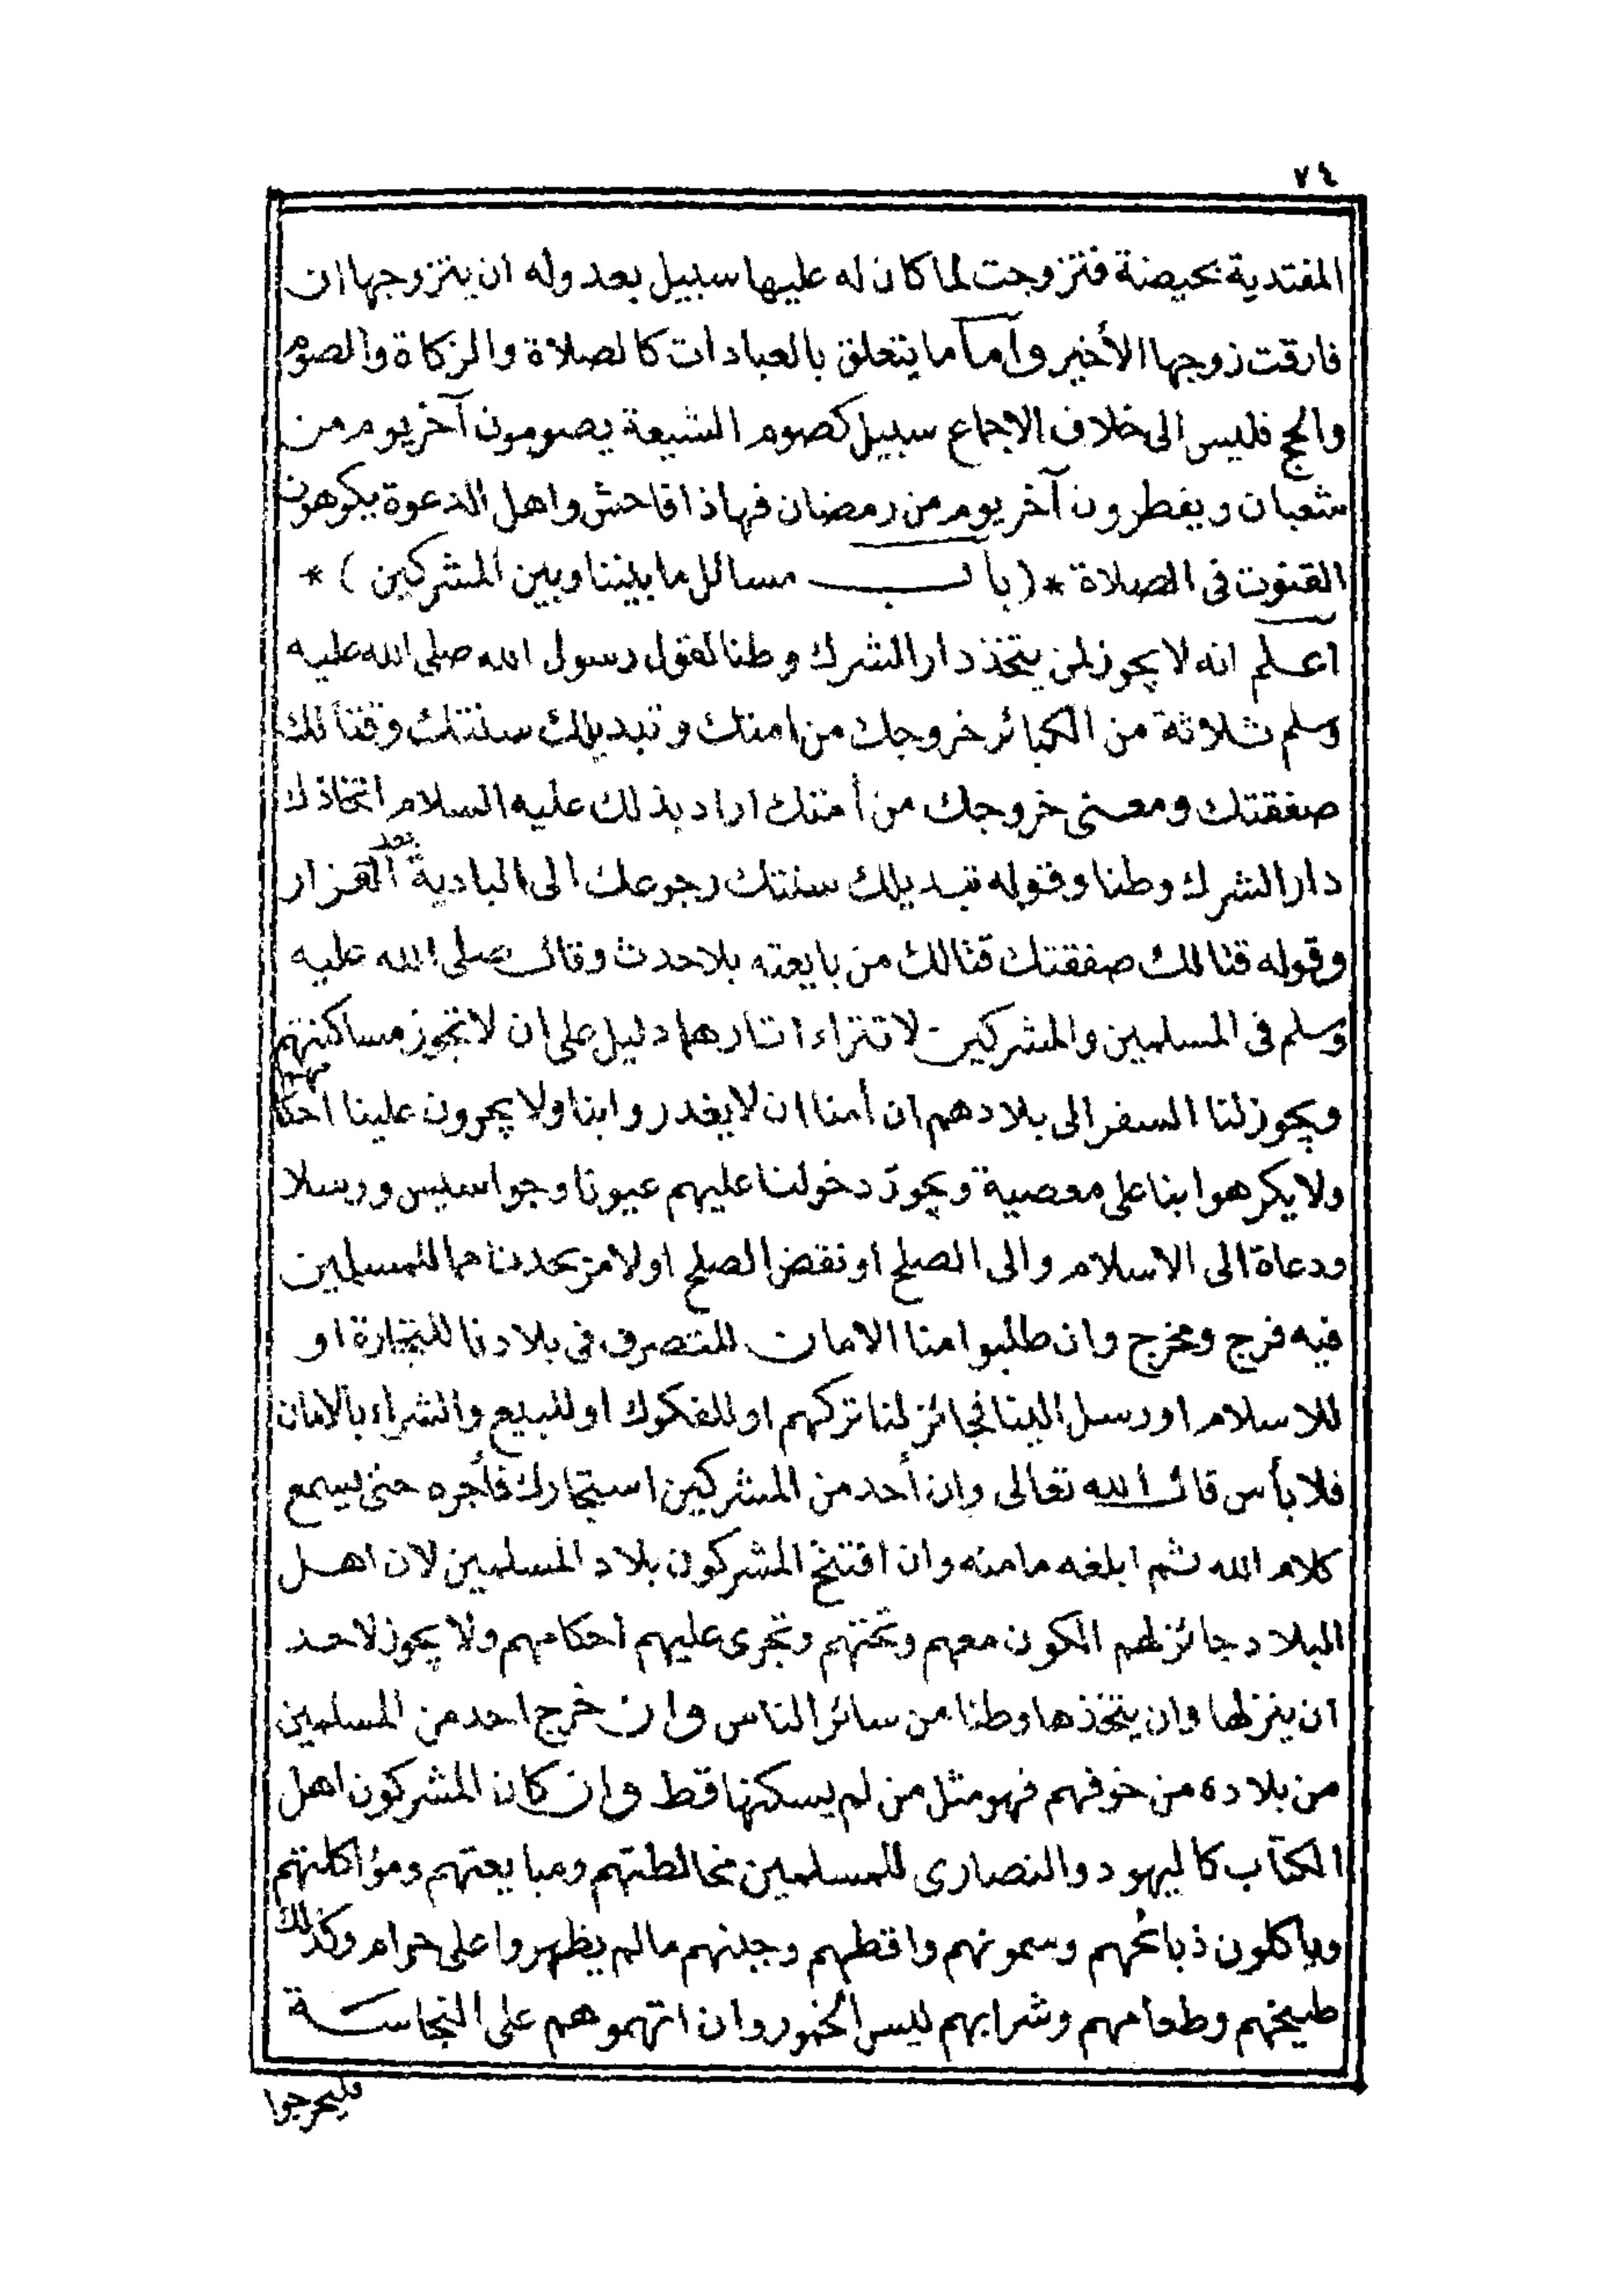 ٧٤
المفتدية بحيضة فتزوجت لما كان له عليها سبيل بعد وله ان يتزوجها ان
فارقت زوجها الأخير وأما ما يتعلق بالعبادات كالصلاة والزكاة والصوم
والحج فليس الى خلاف الاجماع سبيل كصوم الشيعة يصومون آخر يوم من
شعبان ويفطرون آخر يوم من رمضان فهاذا فاحش واهل الدعوة يكرهون
القنوت فى الصلاة *( باب مسائل ما بيننا وبين المشركين )*
اعلم انه لا يجوز لمن يتخذ دار الشرك وطنا لقول رسول الله صلى الله عليه
وسلم ثلاثة من الكبائر خروجك من امتك وتبديلك سنتك وقتالك
صفقتك ومعنى خروجك من أمتك اراد بذلك عليه السلام اتخاذك
دار الشرك وطنا وقوله تبديلك سنتك رجوعك الى البادية بعد القرار
وقوله قتالك صفقتك قتالك من بايعته بلا حدث وقال صلى الله عليه
وسلم فى المسلمين والمشركين لا تتراءا نارهما دليل على ان لا تجوز مساكنتهم
ويجوز لنا السفر الى بلادهم ان أمنا ان لا يغدروا بنا ولا يجرون علينا احكامهم
ولا يكرهوا بنا على معصية ويجوز دخولنا عليهم عيونا وجواسيس ورسلا
ودعاة الى الاسلام والى الصلح او نقض الصلح او لامر يحدث مما للمسلمين
فيه فرج ومخرج وان طلبوا منا الامان للتصرف فى بلادنا للتجارة او
للاسلام او رسل الينا فجائز لنا تركهم او للفكوك او للبيع والشراء بالامان
فلا بأس قال الله تعالى وان أحد من المشركين استجارك فأجره حتى يسمع
كلام الله ثم ابلغه مامنه وان افتتح المشركون بلاد المسلمين لان اهل
البلاد جائز لهم الكون معهم وتحتهم وتجرى عليهم احكامهم ولا يجوز لاحد
ان ينزلها وان يتخذها وطنا من سائر الناس وان خرج احد من المسلمين
من بلاده من خوفهم فهو مثل من لم يسكنها قط وان كان المشركون اهل
الكتاب كاليهود والنصارى للمسلمين مخالطتهم ومبايعتهم ومؤاكلتهم
وياكلون ذبائحهم وسمونهم واقطهم وجبنهم مالم يظهروا على حرام وكذلك
طبيخهم وطعامهم وشرابهم ليس الخمور وان اتهموهم على النجاسة
فليحرجوا